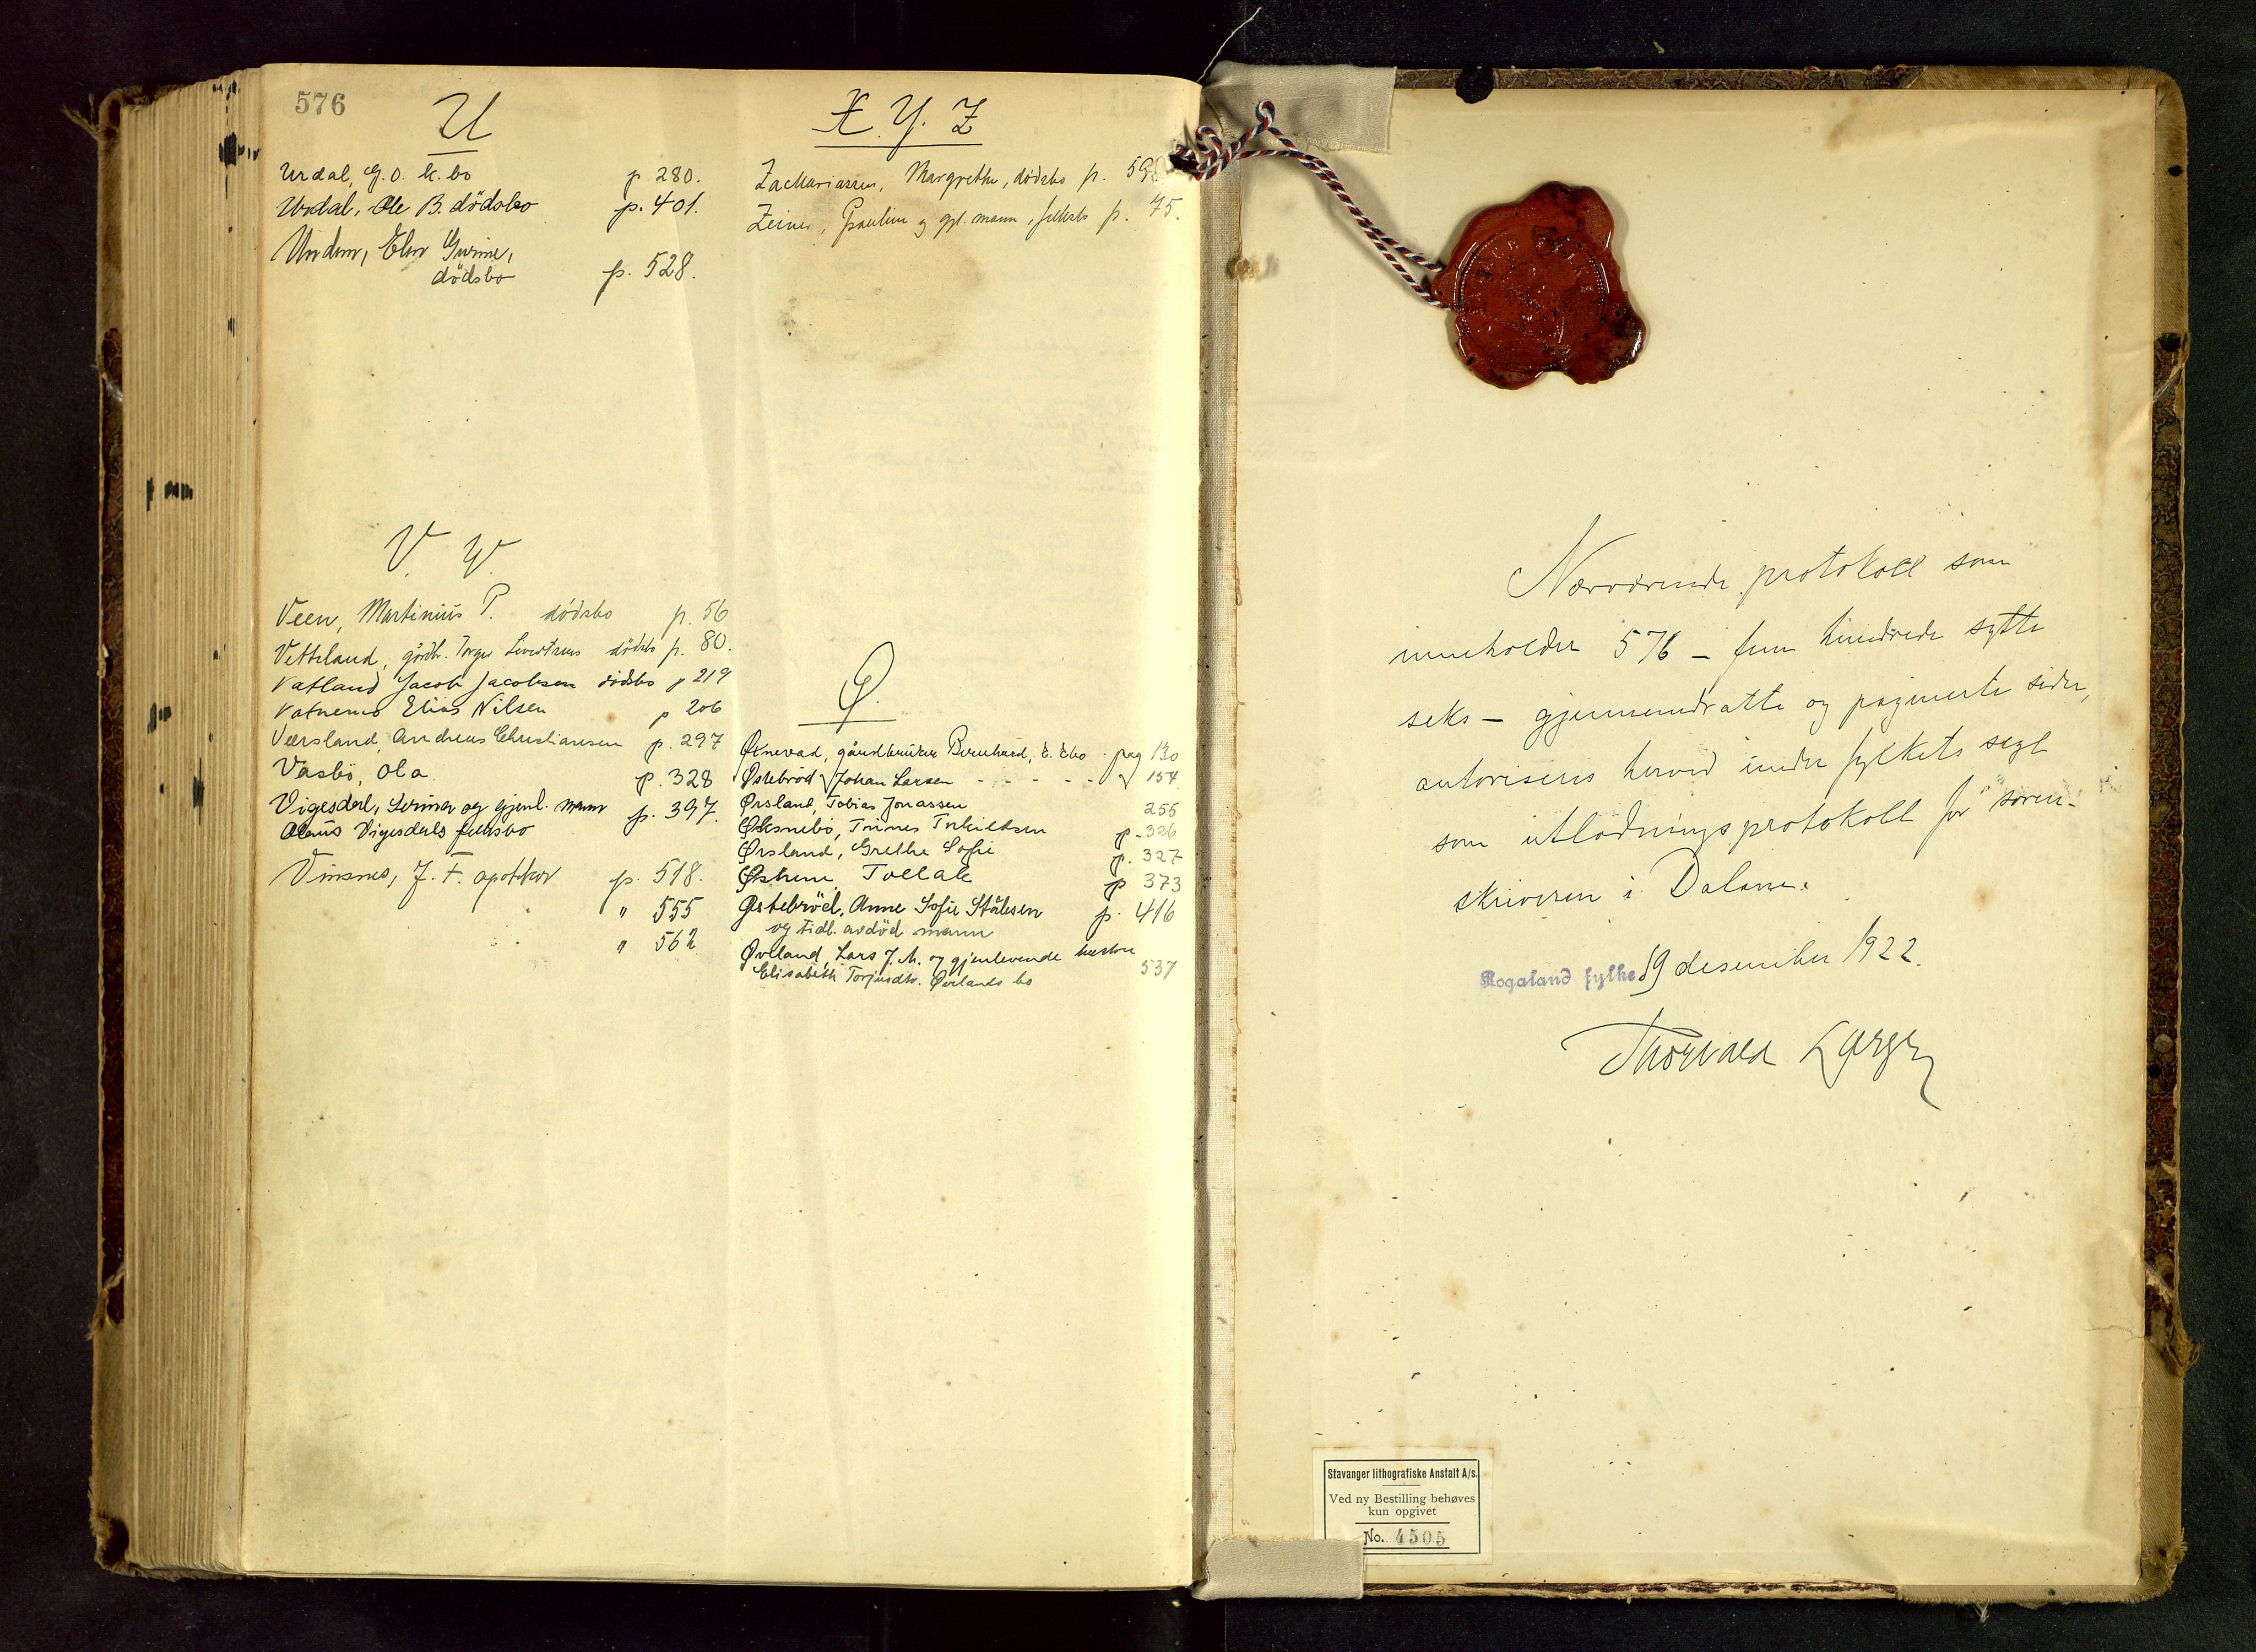 576
U
Urdal, G. O. k. bo p. 280.
Urdal, Ole B. dödsbo p. 401.
Undem, Elen Gurine,
dödsbo p. 528.
V W
Veen, Martinius P. dödsbo p. 56
Vetteland, gårdbr. Torger Sivertsens dödsbo p. 80.
Vatland Jacob Jacobsen dödsbo p 219
Vatnemo Elias Nilsen p 206
Værsland, Andreas Christiansen p. 297
Vasbö, Ola p. 328
Vigesdal, Serina og gjenl. mann p. 397.
Olaus Vigesdals fellesbo
Vinsnes, J. F. apotheker p. 518.
" 555
" 562
X. Y. Z
Zachariassen, Margrethe, dödsbo p.
Zeiner, Pauline og gjl. mann, fellesbo p. 75.
Ø.
Øgnevad, gårdbruker Bernhard, E. Ebo pag 130
Østebrød Johan Larsen - - - - - 154
Ørsland, Tobias Jonassen 255
Øksnebö, Tönnes Torkildsen p. 326
Ørsland, Grethe Sofie p. 327
Østrem Tollak p 373
Østebröd, Anne Sofie Stålesen p. 416
og tidl. avdöd mann
Øvland, Lars J. M. og gjenlevende hustru
Elisabeth Torjusdtr. Øvlands bo 537
Nærværende protokoll som
inneholder 576 - fem hundrede sytti
seks - gjennemdratte og paginerte sider,
autoriseres herved under fylkets segl
som utlodningsprotokoll for soren-
skriveren i Dalane.
Rogaland fylke 19 desember 1922.
Thorvald Larsen
Stavanger lithografiske Anstalt A/s.
Ved ny Bestilling behøves
kun opgivet
No. 4505